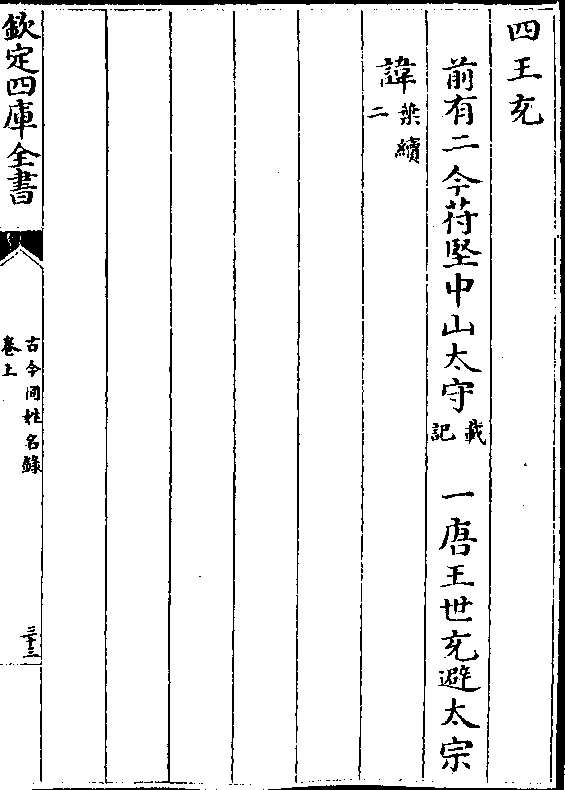 四王充
前有二今苻堅中山太守載記 一唐王世充避太宗
諱葉續二
欽定四庫全書
古今同姓名錄
卷上
三十三